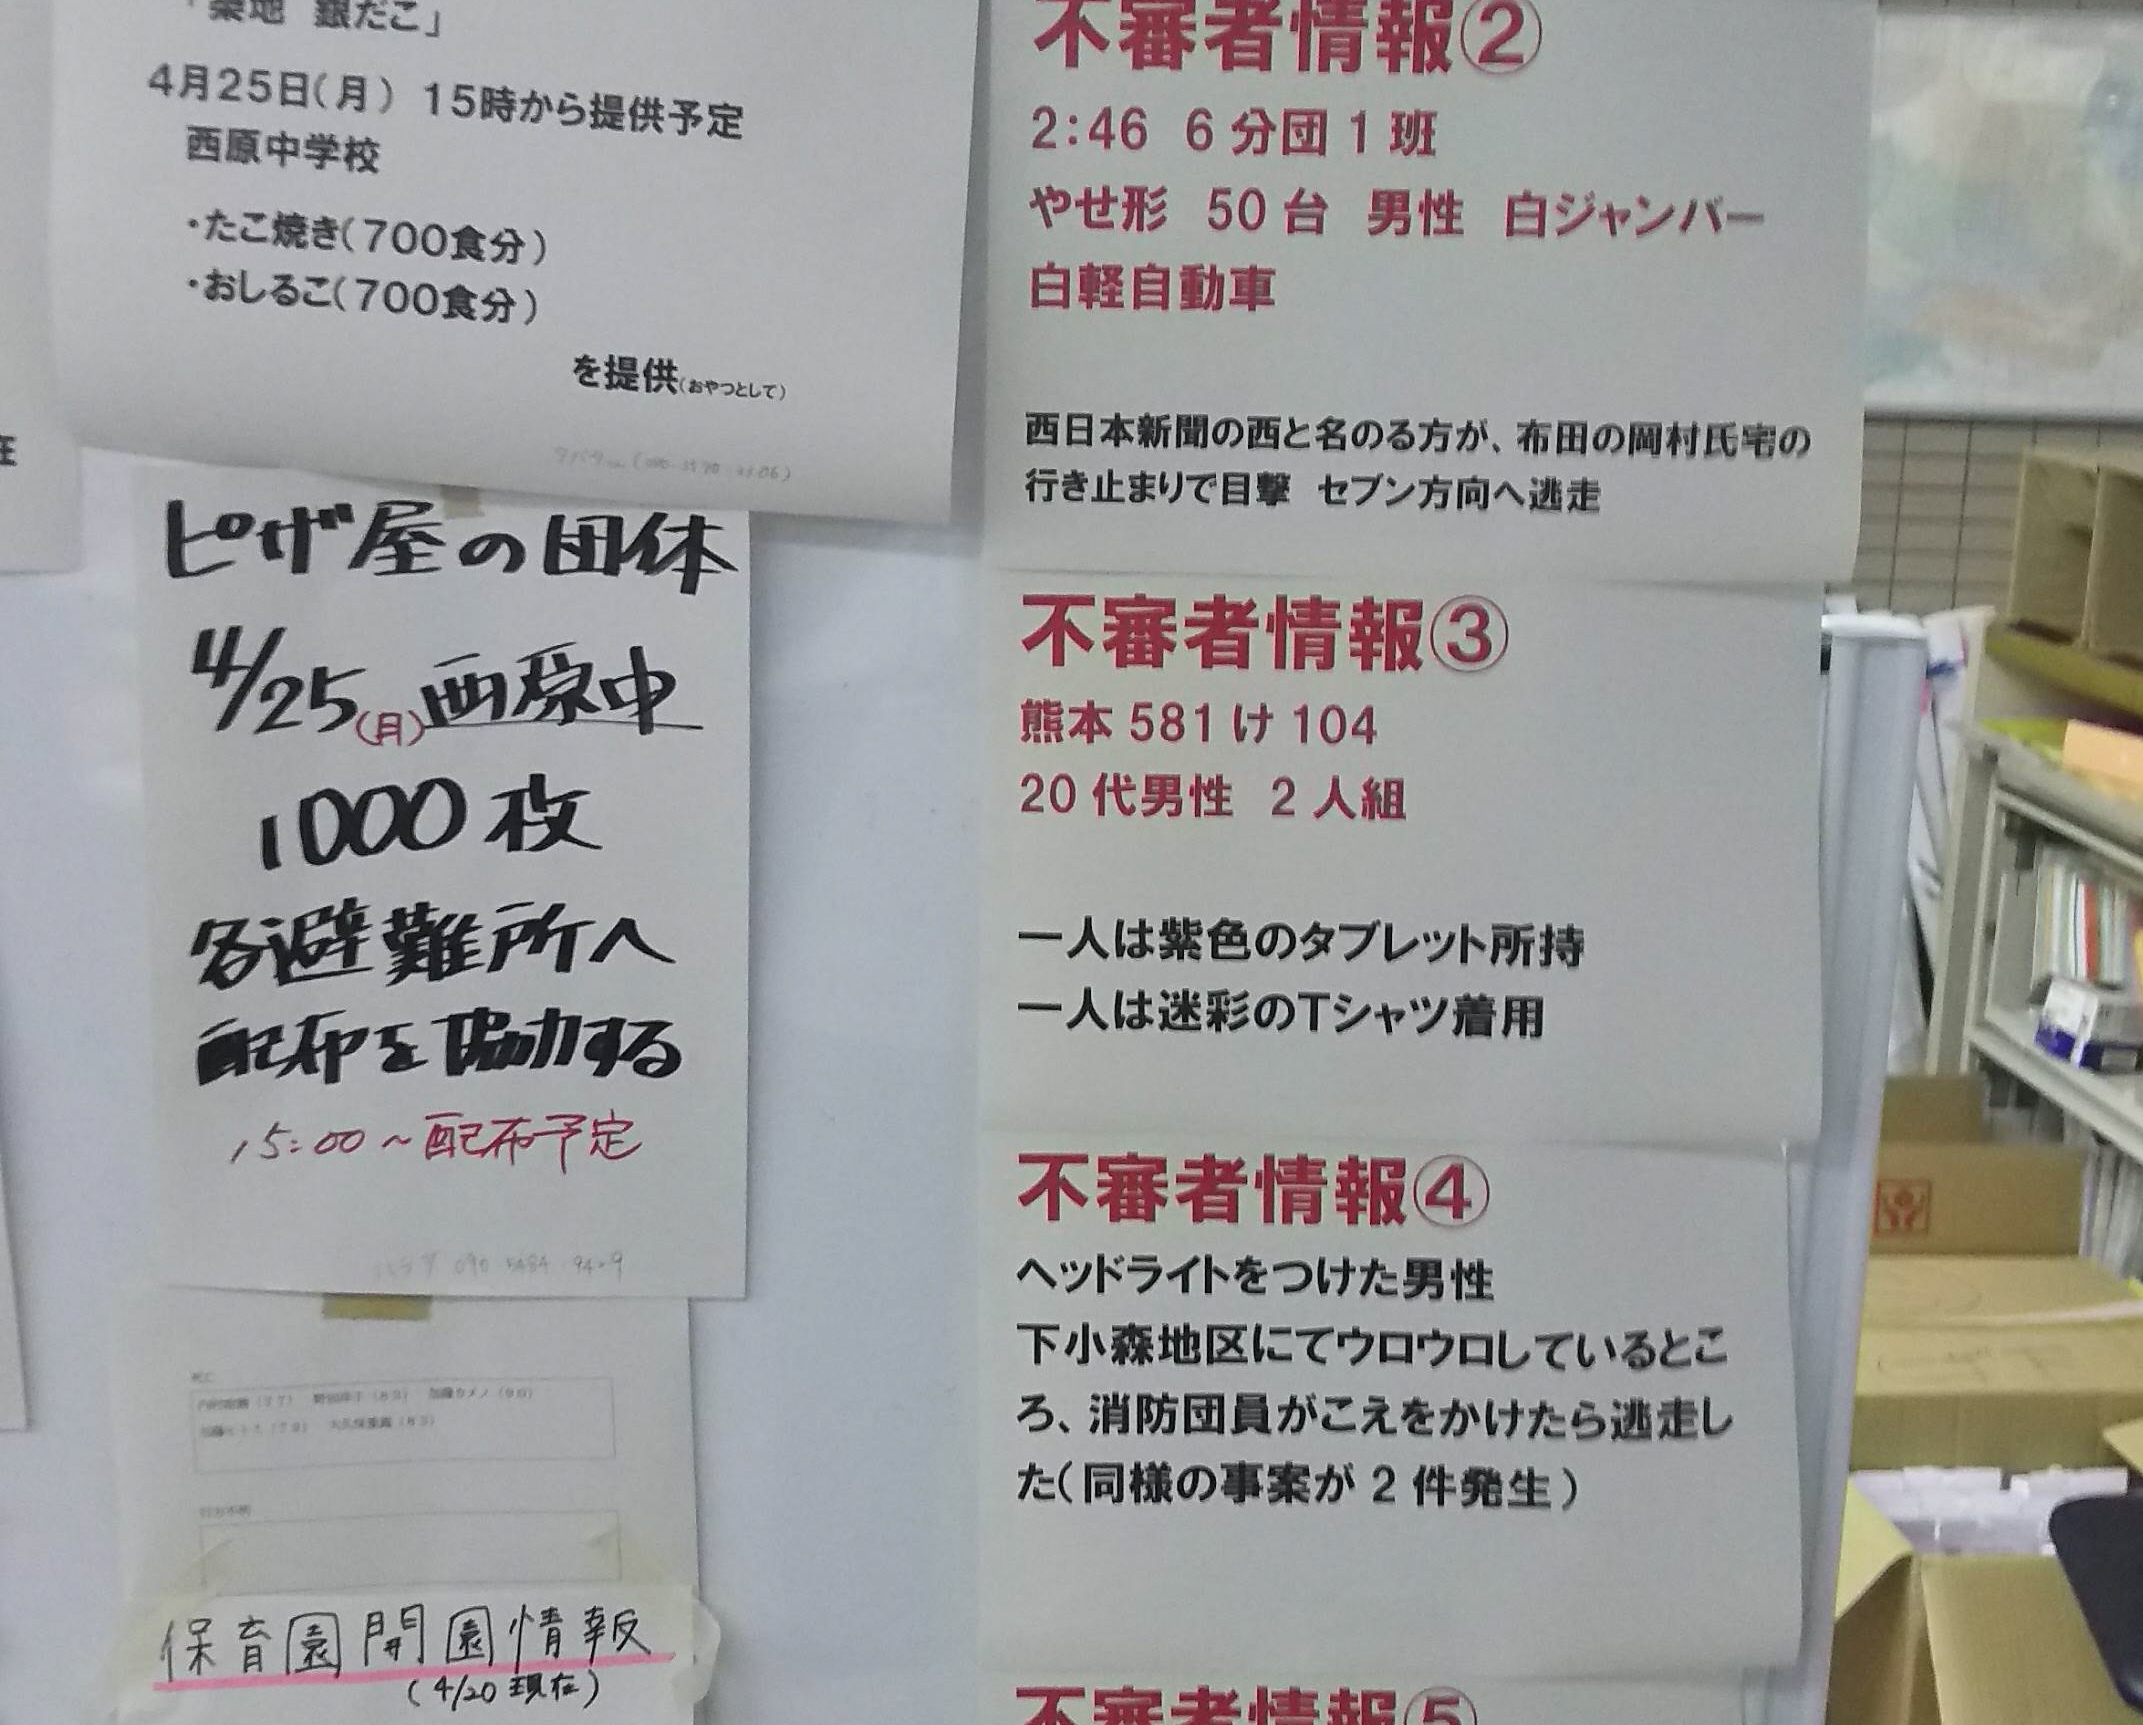 「築地 銀だこ」
4月25日(月) 15時から提供予定
西原中学校
・たこ焼き(700食分)
・おしるこ(700食分)
を提供(おやつとして)
ピザ屋の団体
4/25(月)西原中
1000枚
各避難所へ
配布を協力する
15:00~配布予定
保育園開園情報
(4/20 現在)
不審者情報②
2:46 6分団1班
やせ形 50台 男性 白ジャンバー
白軽自動車
西日本新聞の西と名のる方が、布田の岡村氏宅の
行き止まりで目撃 セブン方向へ逃走
不審者情報③
熊本581け104
20代男性 2人組
一人は紫色のタブレット所持
一人は迷彩のTシャツ着用
不審者情報④
ヘッドライトをつけた男性
下小森地区にてウロウロしているとこ
ろ、消防団員がこえをかけたら逃走し
た(同様の事案が2件発生)
不審者情報⑤